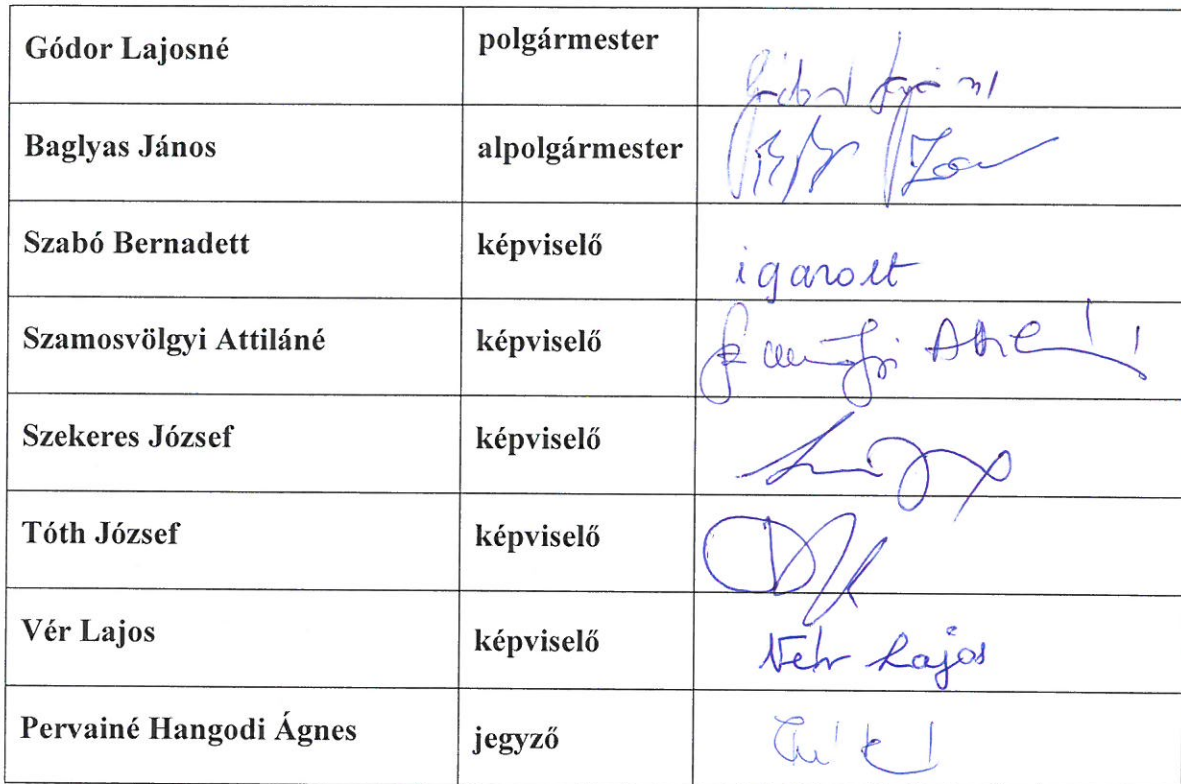 Gódor Lajosné polgármester
Baglyas János alpolgármester
Szabó Bernadett képviselő igazolt
Szamosvölgyi Attiláné képviselő
Szekeres József képviselő
Tóth József képviselő
Vér Lajos képviselő Vér Lajos
Pervainé Hangodi Ágnes jegyző